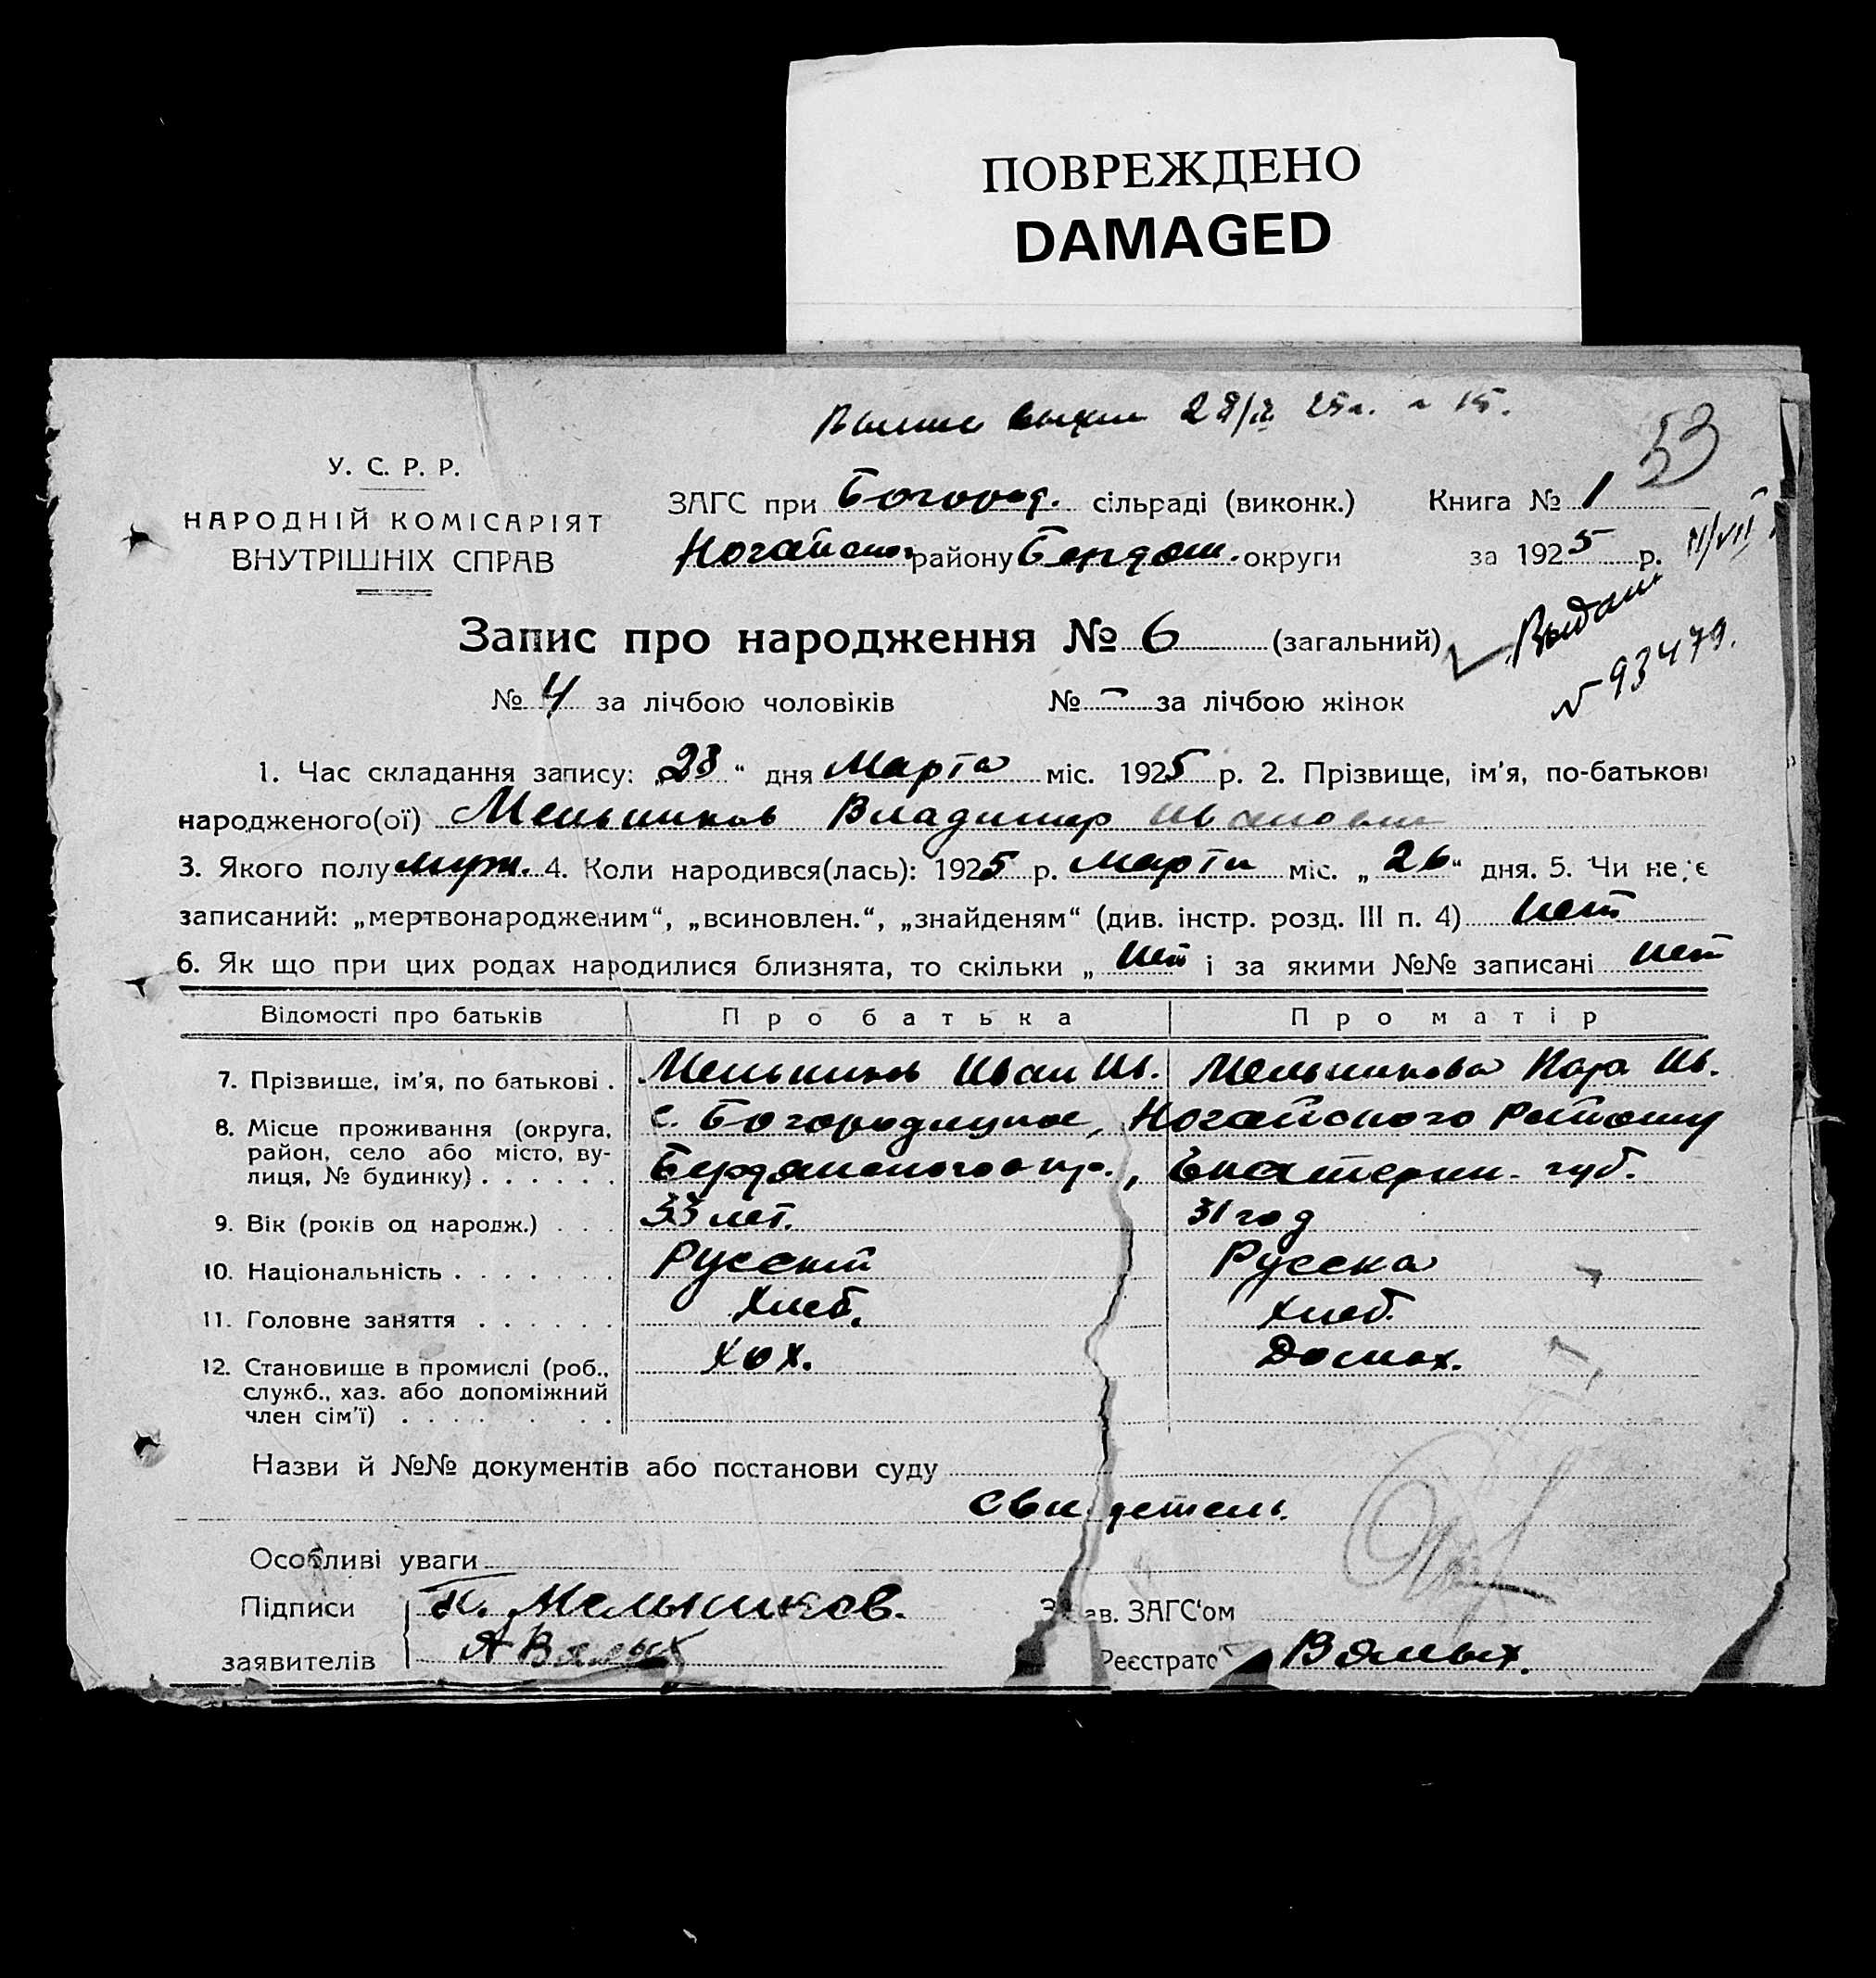 ПОВРЕЖДЕНО
DAMAGED
28/III 25 г. 15.
53
У. С. Р. Р.
НАРОДНІЙ КОМІСАРІЯТ
ВНУТРІШНІХ СПРАВ
ЗАГС при Богород. сільраді (виконк.) Книга № 1
Ногайског району Бердян. округи за 1925 р. 11/VII
Запис про народження № 6 (загальний)
Выдан
№ 93479.
№ 4 за лічбою чоловіків № — за лічбою жінок
1. Час складання запису: „28“ дня Марта міс. 1925 р. 2. Прізвище, ім'я, по-батькові
народженого(ої) Мельников Владимир Иванович
3. Якого полу муж. 4. Коли народився(лась): 1925 р. Марта міс. „26“ дня. 5. Чи не є
записаний: „мертвонародженим“, „всиновлен.“, „знайденям“ (див. інстр. розд. III п. 4) Нет
6. Як що при цих родах народилися близнята, то скільки „ Нет і за якими №№ записані Нет
Відомості про батьків Про батька Про матір
7. Прізвище, ім'я, по батькові . Мельников Иван Ив. Мельникова Ив.
8. Місце проживання (округа, район, село або місто, вулиця, № будинку) . . . . . . с. Богородицкое, Ногайского Району
Бердянского окр., Екатерин. губ.
9. Вік (років од народж.) . . . 33 лет. 31 год
10. Національність . . . . . . . Русский Русска
11. Головне заняття . . . . . . Хлеб. Хлеб.
12. Становище в промислі (роб., служб., хаз. або допоміжний член сім'ї) . . . . . . . Хох. Домох.
Назви й №№ документів або постанови суду
Свидетель.
Особливі уваги
Підписи Мельников. Зав. ЗАГС'ом
заявителів А Вялых Реєстратор Вялых.